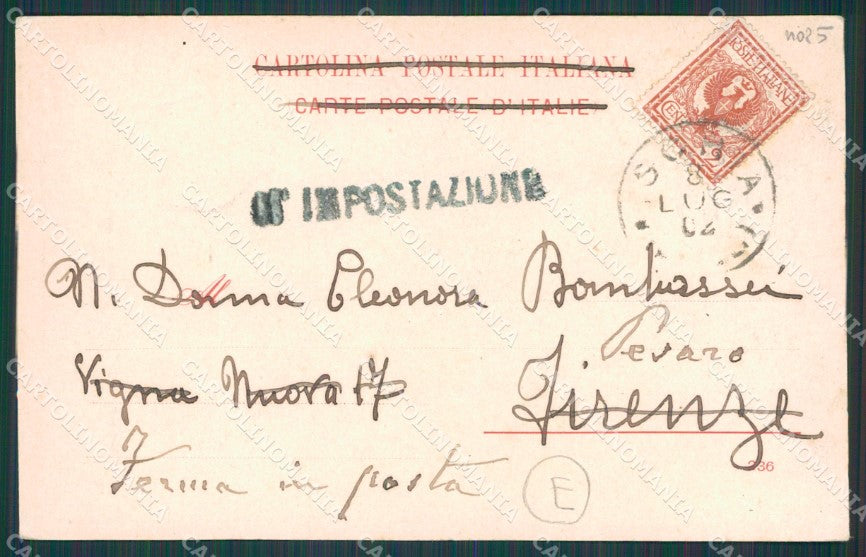 no25
CARTOLINA POSTALE ITALIANA
CARTE POSTALE D'ITALIE
POSTE ITALIANE
CENT. 2
8
LUG
04
IMPOSTAZIONE
N. Donna Eleonora Bombassei
Pesaro
Vigna Nuova 17 Firenze
Ferma in posta
E
36
CARTOLINOMANIA